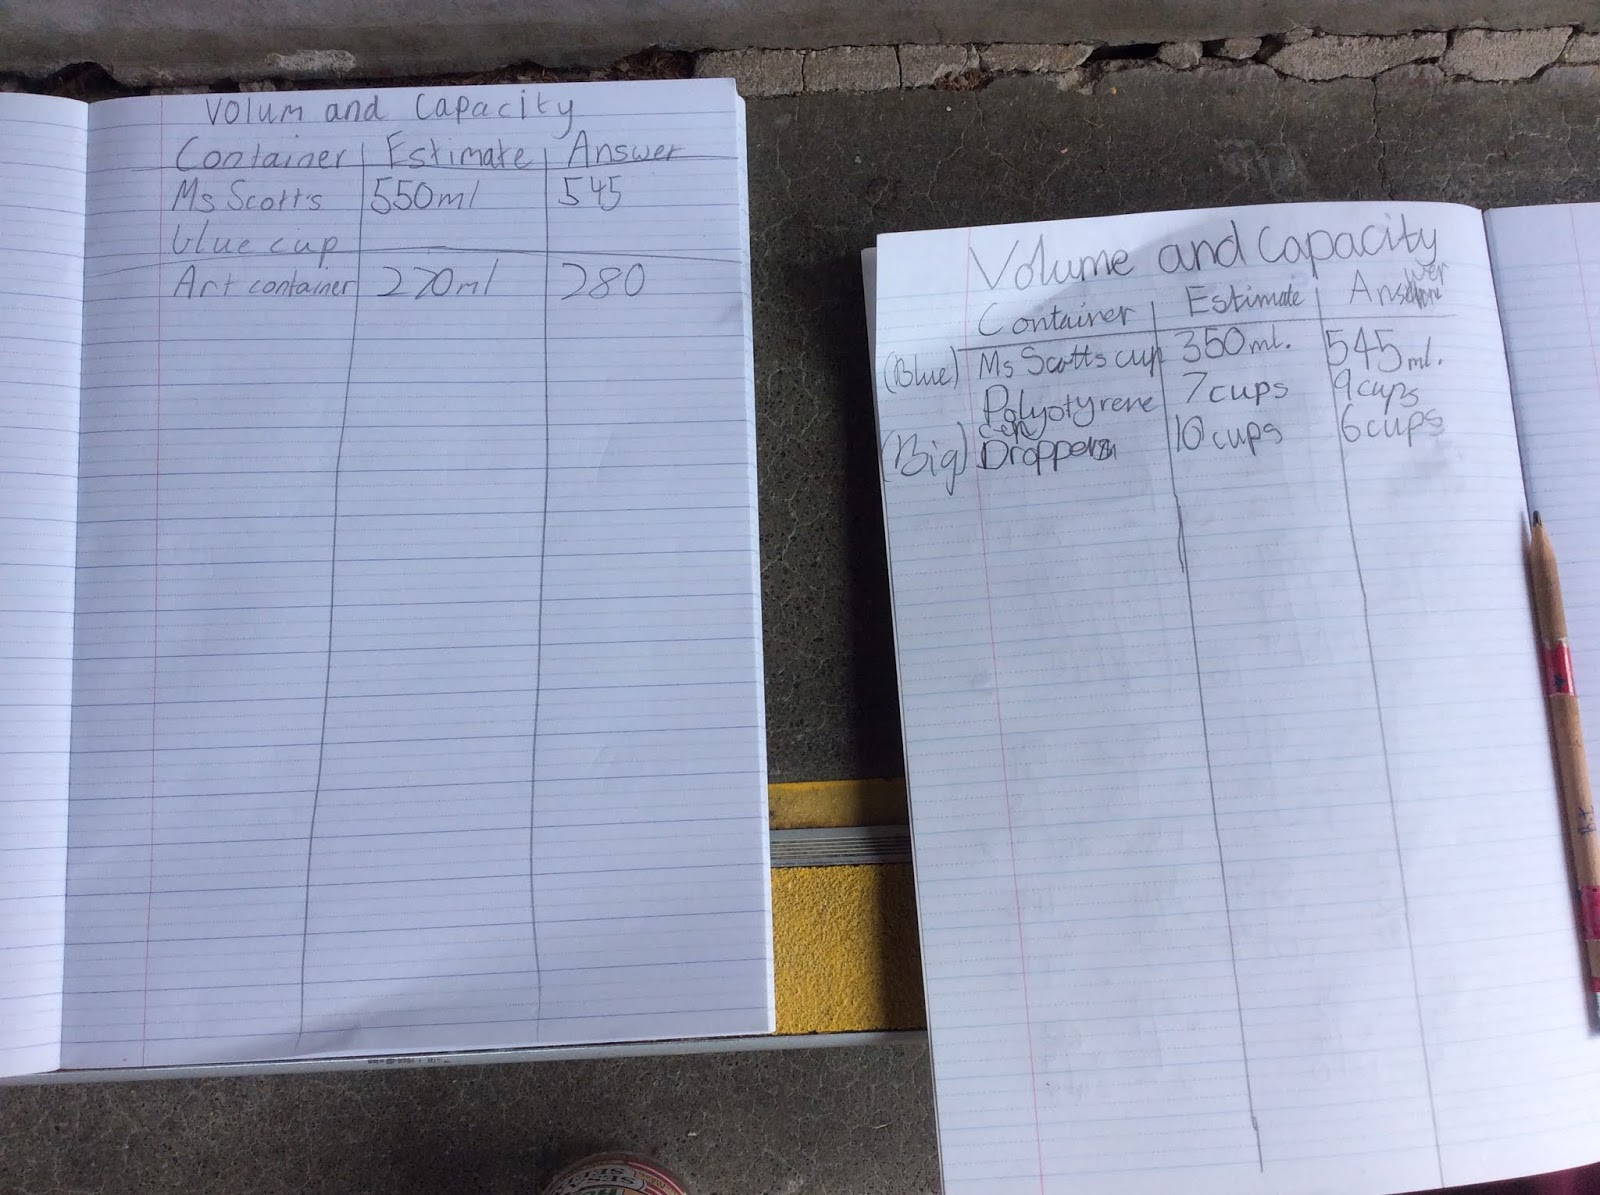 Volum and Capacity
Container Estimate Answer
Ms Scott's 550ml 545
blue cup
Art container 270ml 280
Volume and Capacity
Container Estimate Answer
(Blue) Ms Scotts cup 350ml. 545ml.
Polyotyrene 7 cups 9 cups
cup
(Big) Dropper 10 cups 6 cups